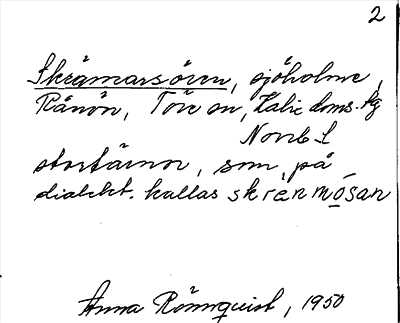 2
Skrämarsören, sjöholme,
Rånön, Töre sn, Kalix doms. sg
Norrb. L
stortärnor, som på
dialekt. kallas skrenmåsan
Anna Rönnquist, 1950